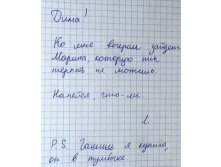 Дина!
Ко мне вечером зайдет
Марина, которую ты
терпеть не можешь
Напейся, что-ли
Я.
P.S. Гашиш я купила,
он в тумбочке